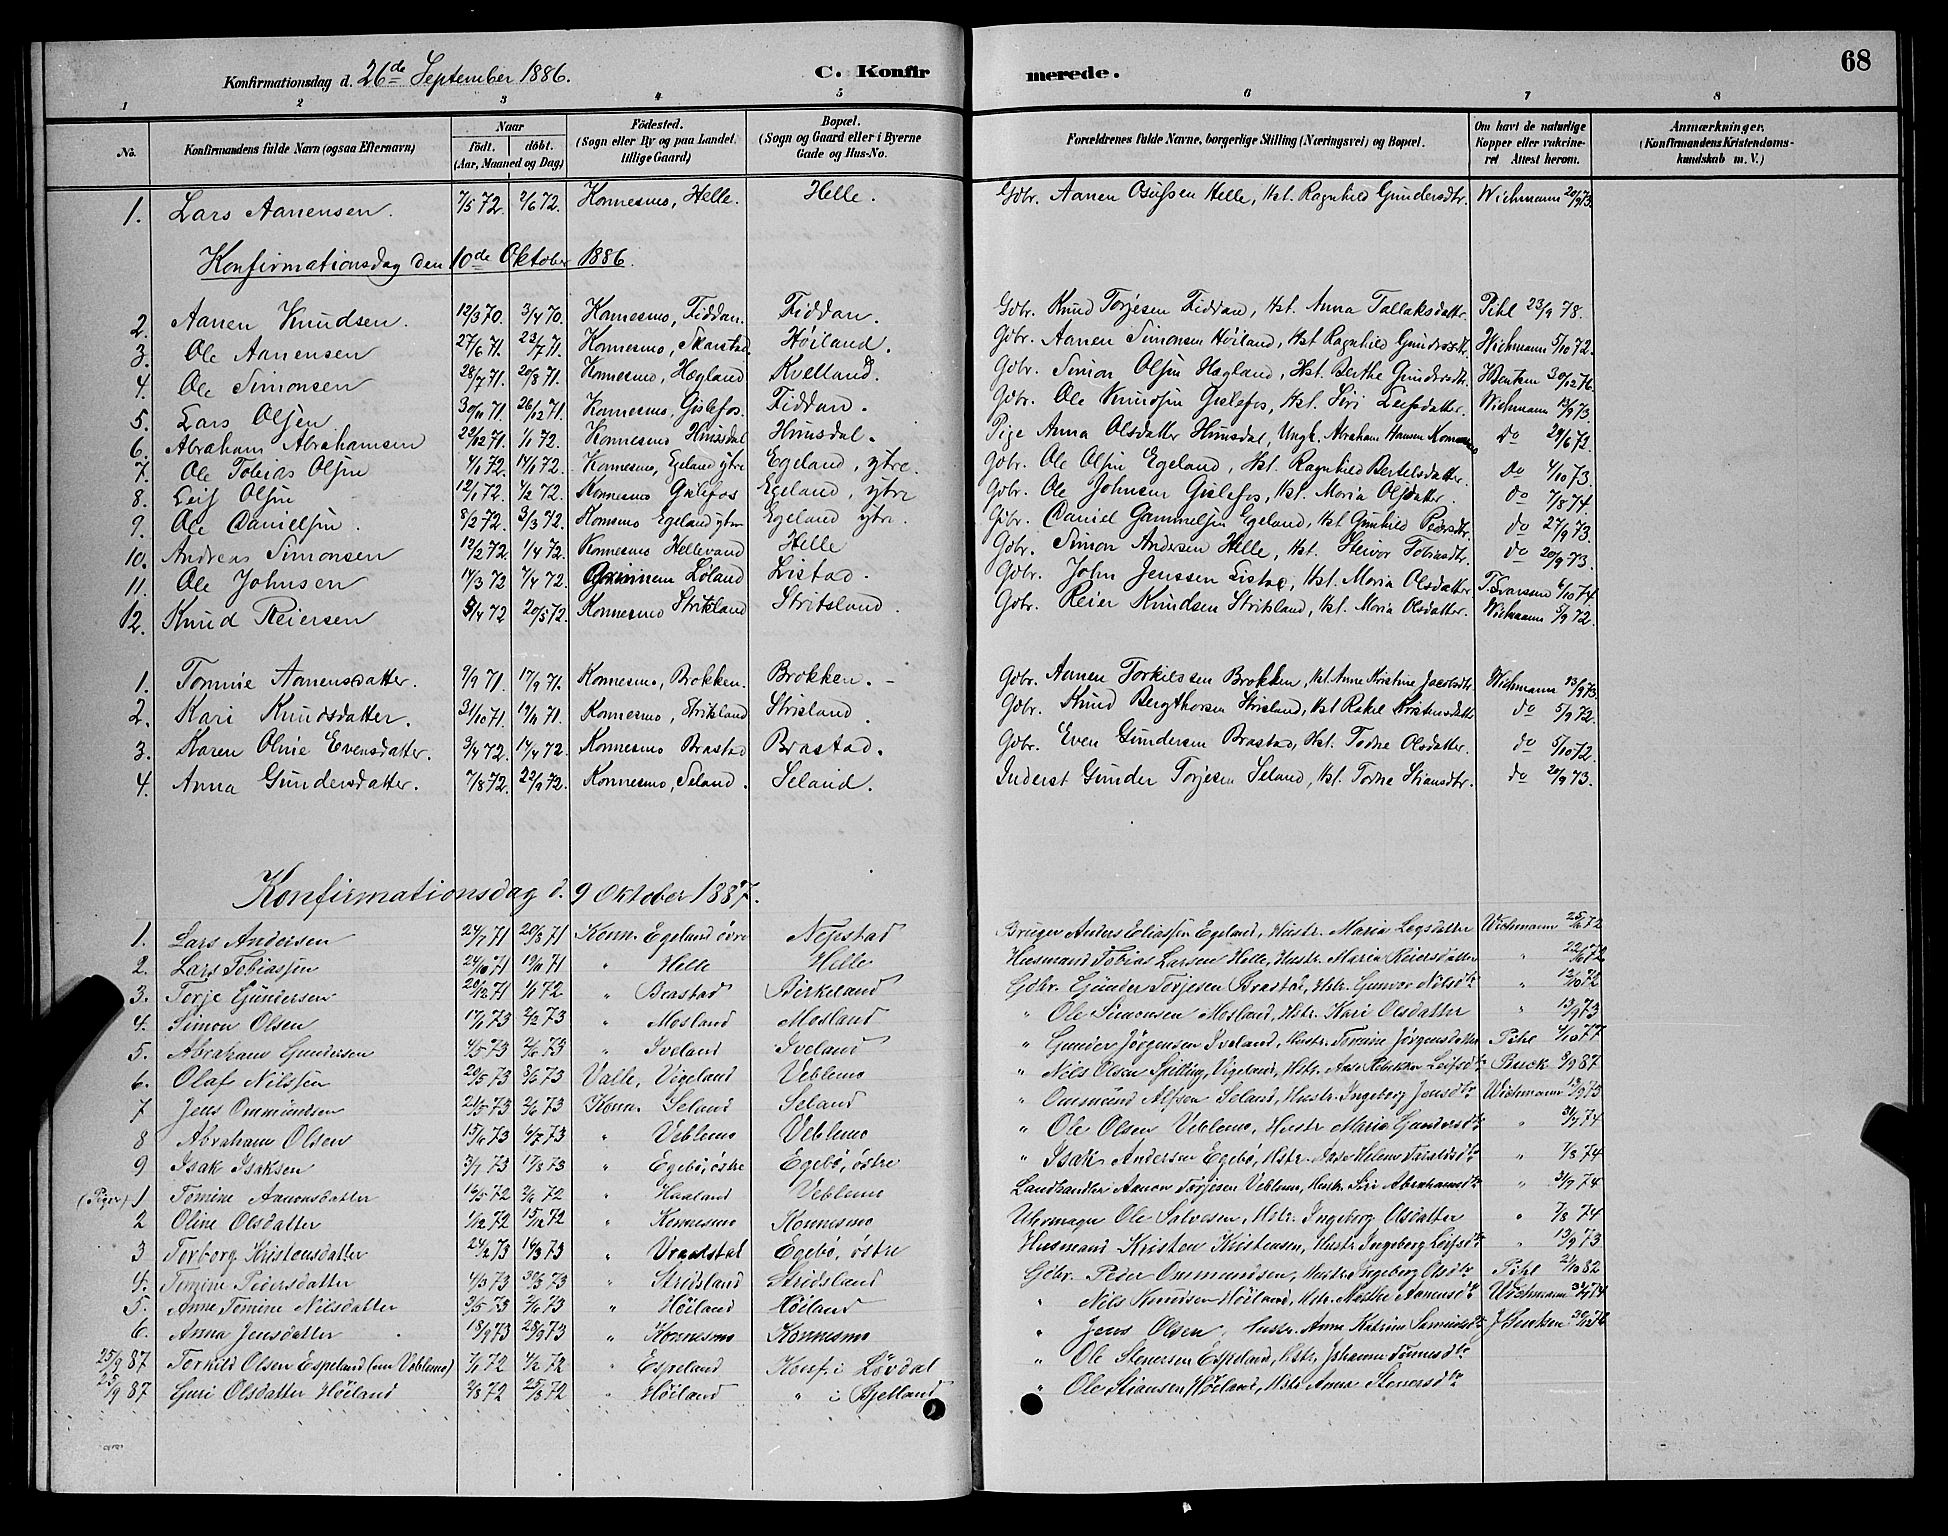 Konfirmationsdag d. 26de September 1886. C. Konfirmerede. 68
1 2 3 4 5 6 7 8
No. Konfirmandens fulde Navn (ogsaa Efternavn) Naar födt. döbt. (Aar, Maaned og Dag) Födested. (Sogn eller By og paa Landet tillige Gaard) Bopæl. (Sogn og Gaard eller i Byerne Gade og Hus-No. Forældrenes fulde Navne, borgerlige Stilling (Næringsvei) og Bopæl. Om havt de naturlige Kopper eller vakcineret Attest herom. Anmærkninger. (Konfirmandens Kristendomskundskab m. V.)
1. Lars Aanensen. 7/5 72. 2/6 72. Konnesmo, Helle. Helle. Gdbr. Aanen Osufsen Helle, Hst. Ragnhild Gundersdtr. Wichmann 20/9 73.
Konfirmationsdag den 10de Oktober 1886.
2. Aanen Knudsen. 12/3 70. 3/4 70. Konnesmo, Fiddan. Fiddan. Gdbr. Knud Torjesen Fiddan, Hst. Anna Tallaksdattr. Pihl 23/9 78.
3. Ole Aanensen 27/6 71. 23/7 71. Konnesmo, Skarstad. Høiland. Gdbr. Aanen Simonsen Høiland, Hst Ragnhild Gundersdtr. Wichmann 5/10 72.
4. Ole Simonsen 28/7 71. 20/8 71. Konnesmo, Hægland Kvelland. Gdbr. Simon Olsen Hægland, Hst. Berthe Gundersdtr. 30/12 76.
5. Lars Olsen 30/11 71. 26/12 71. Konnesmo, Gislefos. Fiddan. Gdbr. Ole Knudsen Gislefos, Hst. Siri Leifsdatter. Wichmann 13/9 73.
6. Abraham Abrahamsen 29/12 71. 1/1 72. Konnesmo Hunsdal Hunsdal. Pige Anna Olsdatter Hunsdal, Ungk. Abraham Hansen Konnesmo do 29/6 73.
7. Ole Tobias Olsen 4/1 72. 14/1 72. Konnesmo, Egeland ytre Egeland, ytre. Gdbr. Ole Olsen Egeland, Hst. Ragnhild Bertelsdatter. do 4/10 73.
8. Leif Olsen 12/1 72. 4/2 72. Konnesmo Gislefos Egeland, ytre Gdbr. Ole Johnsen Gislefos, Hst. Maria Olsdatter. do 7/8 74.
9. Ole Danielsen. 8/2 72. 3/3 72. Konnesmo Egeland ytre Egeland ytre. Gdbr. Daniel Gammelsen Egeland, Hst Gunhild Pedersdtr. do 27/9 73.
10. Andreas Simonsen 12/2 72. 1/4 72. Konnesmo Hellevand Helle Gdbr. Simon Andersen Helle, Hst. Steivor Tobiasdtr. do 20/9 73.
11. Ole Johnsen 14/3 72 7/4 72. Grinnem Løland Listad. Gdbr. John Jenssen Listad, Hst. Maria Olsdatter. T. Ivarsen 6/10 74.
12. Knud Reiersen 5/4 72 20/5 72. Konnesmo Stritsland Stritsland. Gdbr. Reier Knudsen Stritsland, Hst. Maria Olsdatter. Wichmann 5/9 72.
1. Tomine Aanensdatter. 9/9 71. 17/9 71. Konnesmo, Brokken. Brokken. Gdbr. Aanen Torkilssen Brokken, Hst Anne Kristine Jacobsdtr. Wichmann 13/9 73.
2. Kari Knudsdatter. 31/10 71. 19/11 71. Konnesmo, Stritsland Strisland. Gdbr. Knud Bergthorsen Strisland, Hst Rakel Kristensdattr do 5/9 72.
3. Karen Oline Evensdatter. 9/4 72. 14/4 72. Konnesmo Brastad Brastad. Gdbr. Even Gundersen Brastad, Hst. Todne Olsdatter. do 5/10 72.
4. Anna Gundersdatter. 7/8 72. 22/9 72. Konnesmo, Seland. Seland. Inderst Gunder Torjesen Seland, Hst. Todne Stiansdtr. do 20/9 73.
Konfirmationsdag d. 9 Oktober 1887.
1. Lars Andersen 24/7 71 20/8 71 Konn. Egeland övre Nepstad Bruger Anders Eliassen Egeland, Hustr. Maria Legsdatter Wichmann 25/ 72
2. Lars Tobiassen 24/10 71 19/11 71 " Helle Helle Husmand Tobias Larsen Helle, Hustr. Maria Reiersdatter " 22/ 72
3. Torje Gundersen 20/12 71 1/1 72 " Brastad Birkeland Gdbr. Gunder Torjesen Brastad, Hstr. Gunvor Nilsdtr " 12/10 72
4. Simon Olsen 17/1 73 2/2 73 " Mosland Mosland " Ole Simonsen Mosland, Hstr. Kari Olsdatter " 13/9 73
5. Abraham Gundersen 4/5 73 2/6 73 " Iveland Iveland " Gunder Jörgensen Iveland, Hustr. Tomine Jörgensdatter Pihl 4/10 77
6. Olaf Nilssen 20/5 73 8/6 73 Valle, Vigeland Veblemo " Nils Olsen Spilling, Vigeland, Hstr. Leifsdtr Buck 9/9 87
7 Jens Ommundsen 21/5 73 2/6 73 Konn. Seland Seland " Ommund Alfsen Seland, Hustr. Ingeborg Jensdtr Wichmann 13/9 73
8 Abraham Olsen 15/6 73 6/7 73 " Veblemo Veblemo " Ole Olsen Veblemo, Hustr Maria Gundersdtr " 31/7 74
9 Isak Isaksen 3/7 73 17/8 73 " Egebö, östre Egebö, östre " Isak Andersen Egebö, Hstr. Helene Taraldsdtr " 7/8 74
(Piger) 1 Tomine Aanonsdatter 16/5 72 2/6 72 " Haaland Veblemo Landhandler Aanon Torjesen Veblemo, Hustr. Siri Abrahamsdtr " 31/7 74
2 Oline Olsdatter 1/12 72 15/12 72 " Konnesmo Konnesmo Uhrmager Ole Salvesen, Hstr. Ingeborg Olsdatter " 7/8 74
3 Torborg Kristensdatter 24/2 73 16/3 73 " Vraalstal Egebö, östre Husmand Kristen Kristensen, Hustr Ingeborg Leifsdtr " 13/9 73
4. Tomine Pedersdatter 4/3 73 30/3 73 " Stridsland Stridsland Gdbr. Peder Ommundsen, Hustr. Ingeborg Olsdtr Pihl 21/10 82
5. Anne Tomine Nilsdatter 9/5 73 2/6 73 " Höiland Höiland " Nils Knudsen Höiland, Hstr. Marthe Aanensdtr Wichmann 31/7 74
6. Anna Jensdatter 18/9 73 28/9 73 " Konnesmo Konnesmo " Jens Olsen, Hustr. Anne Katrine Samuelsdtr 30/12 76
25/9 87 Torkild Olsen Espeland (nu Veblemo) 7/1 72 4/2 72 " Espeland Konf. i Lövdal " Ole Stenersen Espeland, Hstr. Johanne Tönnesdtr
25/9 87 Guri Olsdatter Höiland 9/3 72 25/3 72 " Höiland " i Bjelland " Ole Stiansen Höiland, Hstr Anna Stenersdtr